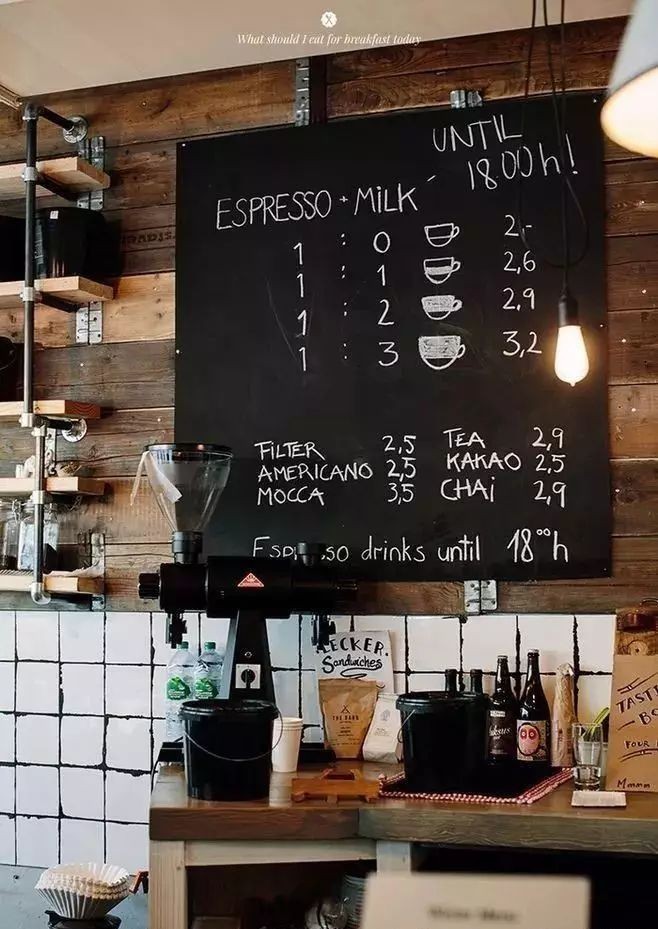 X
What should I eat for breakfast today
UNTIL
18.00h!
ESPRESSO + MILK
1 : 0 2,-
1 : 1 2,6
1 : 2 2,9
1 : 3 3,2
FILTER 2,5 TEA 2,9
AMERICANO 2,5 KAKAO 2,5
MOCCA 3,5 CHAI 2,9
drinks until 18ººh
LECKER.
Sandwiches
THE BARN
TASTE
FOUR
Mmmm